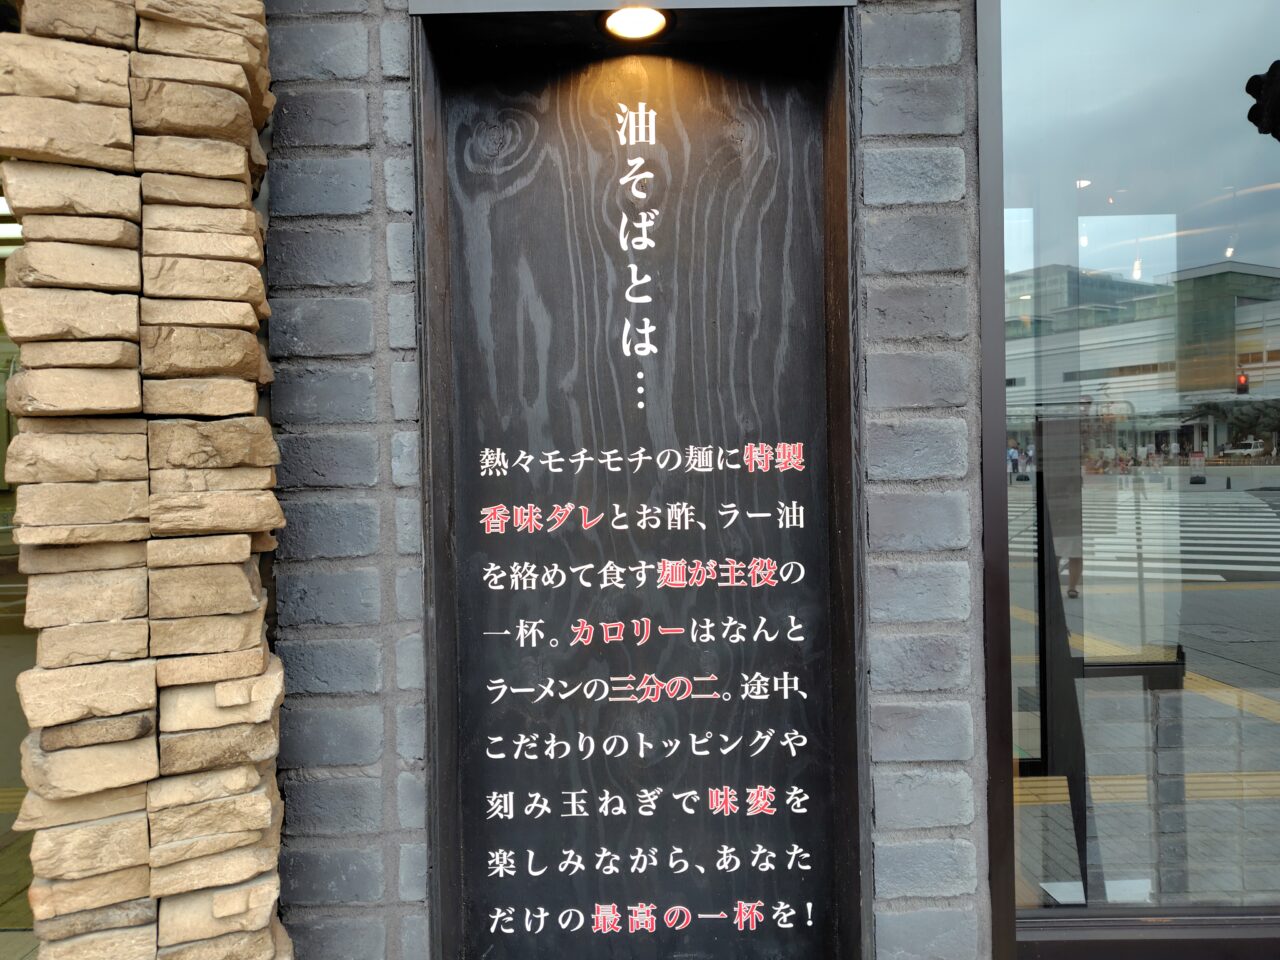 油そばとは…
熱々モチモチの麺に特製
香味ダレとお酢、ラー油
を絡めて食す麺が主役の
一杯。カロリーはなんと
ラーメンの三分の二。途中、
こだわりのトッピングや
刻み玉ねぎで味変を
楽しみながら、あなた
だけの最高の一杯を!